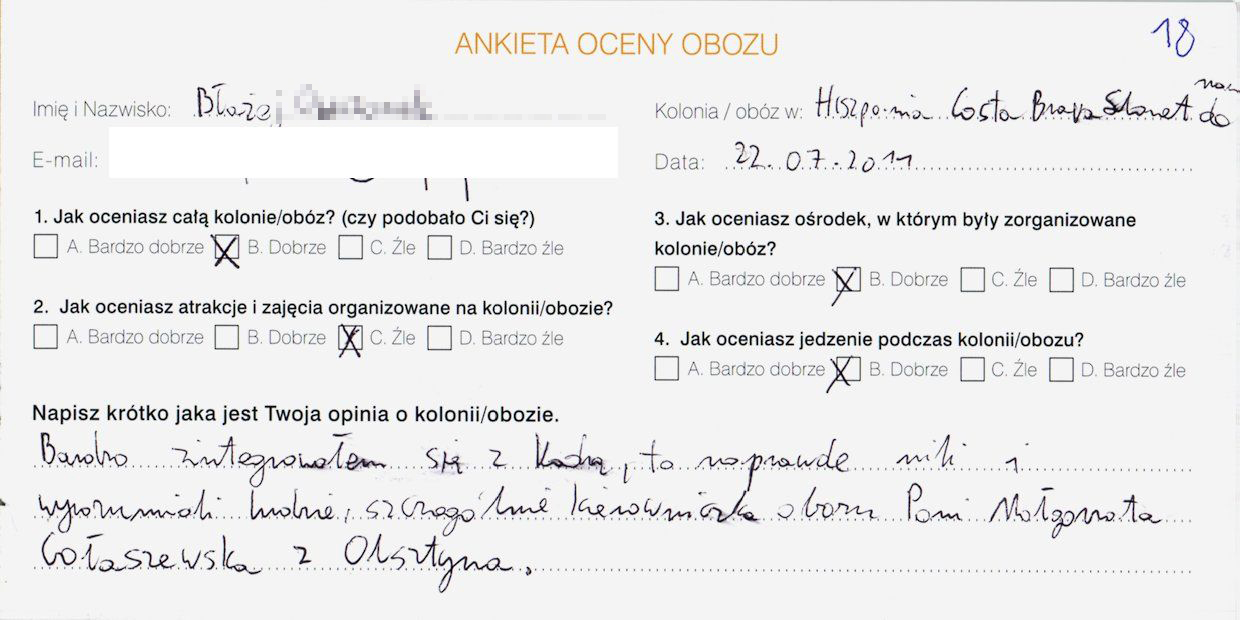 18
ANKIETA OCENY OBOZU
Imię i Nazwisko: Błażej
Kolonia / obóz w: Hiszpania Costa Brava do
E-mail:
Data: 22.07.2011
1. Jak oceniasz całą kolonie/obóz? (czy podobało Ci się?)
A. Bardzo dobrze B. Dobrze C. Źle D. Bardzo źle
2. Jak oceniasz atrakcje i zajęcia organizowane na kolonii/obozie?
A. Bardzo dobrze B. Dobrze C. Źle D. Bardzo źle
3. Jak oceniasz ośrodek, w którym były zorganizowane
kolonie/obóz?
A. Bardzo dobrze B. Dobrze C. Źle D. Bardzo źle
4. Jak oceniasz jedzenie podczas kolonii/obozu?
A. Bardzo dobrze B. Dobrze C. Źle D. Bardzo źle
Napisz krótko jaka jest Twoja opinia o kolonii/obozie.
Bardzo zintegrowałem się z Kadrą, to naprawde mili i
wyrozumiali ludzie, szczególnie kierowniczka obozu Pani Małgorzata
Gołaszewska z Olsztyna.